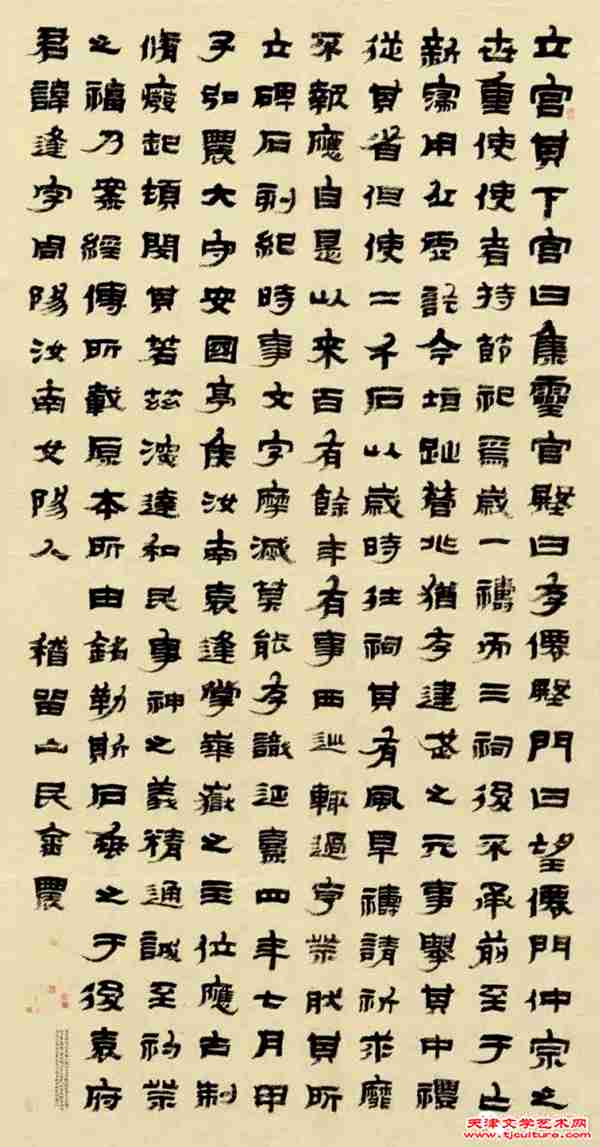 立宮其下宮曰集靈宮殿曰存僊殿門曰望僊門仲宗之
世重使使者持節祀焉歲一禱而三祠後不承前至于亡
新寖用丘虛訖今垣趾營兆猶存建武之元事舉其中禮
從其省但使二千石以歲時往祠其有風旱禱請祈求靡
不報應自是以來百有餘年有事西巡輒過亨祭肰其所
立碑石刻紀時事文字摩滅莫能存識延熹四年七月甲
子弘農大守安國亭侯汝南袁逢掌華嶽之主位應古制
脩廢起頓閔其若茲深達和民事神之義精通誠至礿祭
之福乃案經傳所載原本所由銘勒斯石垂之于後袁府
君諱逢字周陽汝南女陽人 稽留山民金農
天津文学艺术网
www.tjculture.com